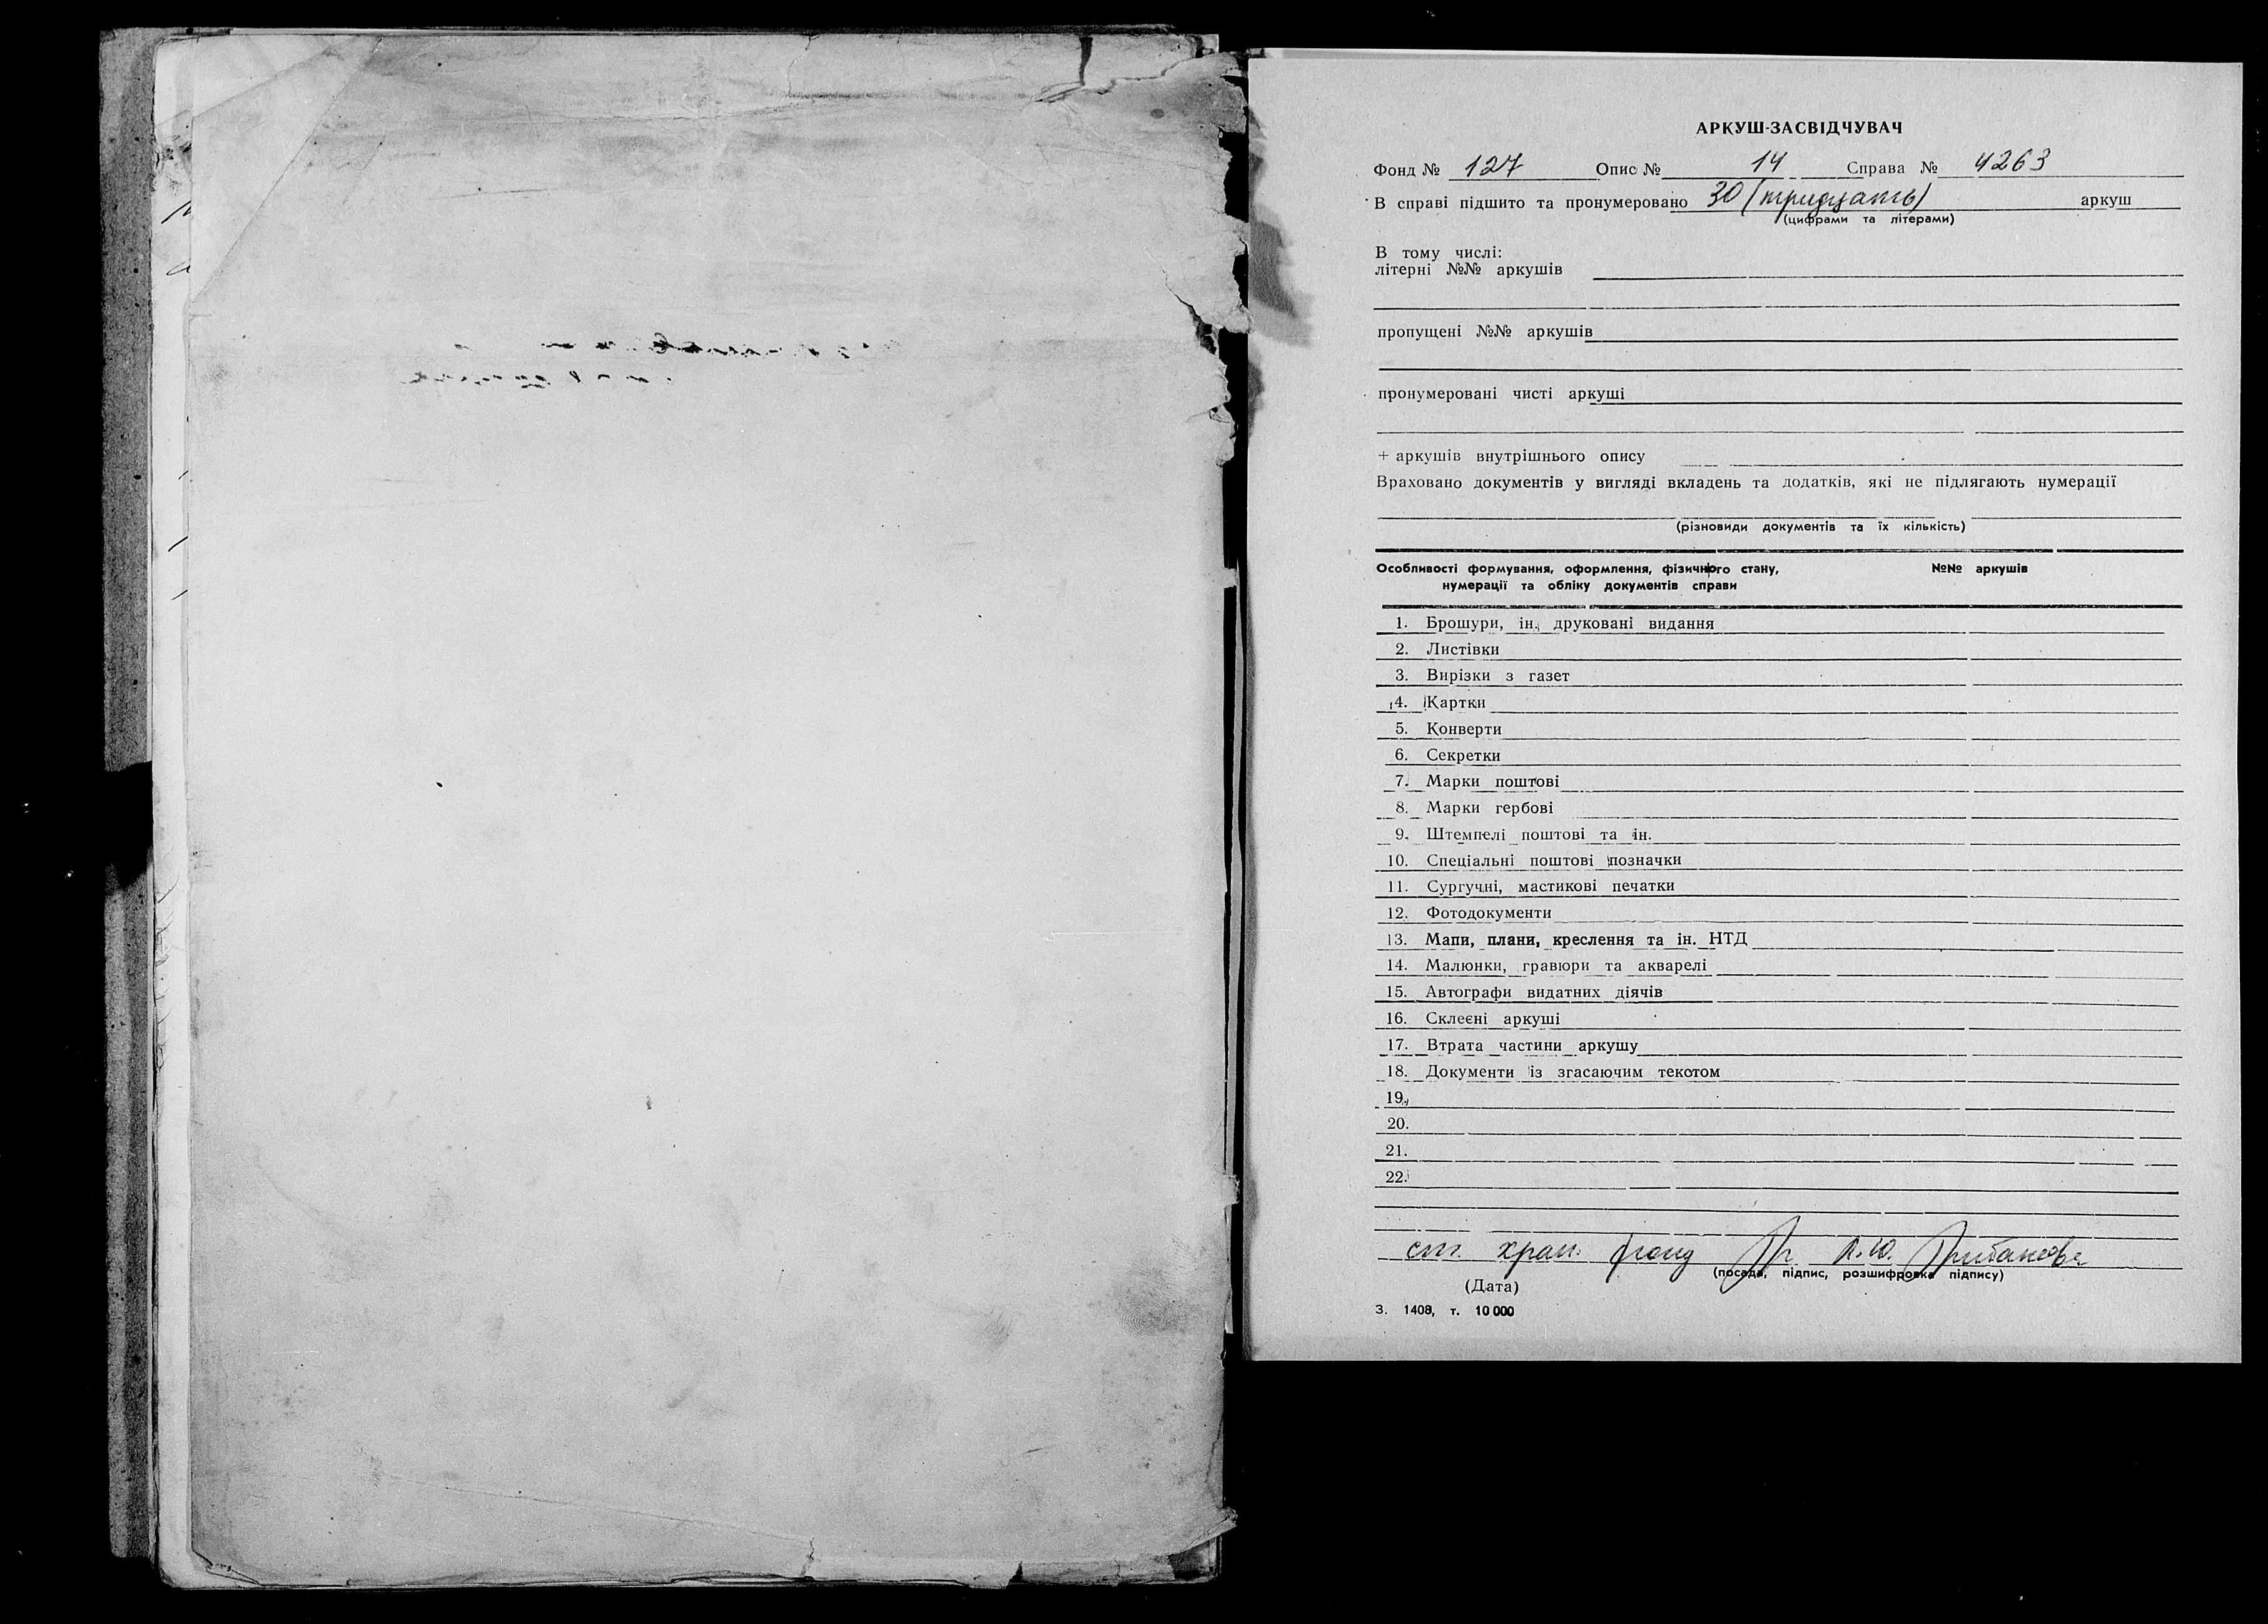 АРКУШ-ЗАСВІДЧУВАЧ
Фонд № 127 Опис № 14 Справа № 4263
В справі підшито та пронумеровано 30 (тридцать) аркуш
(цифрами та літерами)
В тому числі:
літерні №№ аркушів
пропущені №№ аркушів
пронумеровані чисті аркуші
+ аркушів внутрішнього опису
Враховано документів у вигляді вкладень та додатків, які не підлягають нумерації
(різновиди документів та їх кількість)
Особливості формування, оформлення, фізичного стану, №№ аркушів
нумерації та обліку документів справи
1. Брошури, ін. друковані видання
2. Листівки
3. Вирізки з газет
4. Картки
5. Конверти
6. Секретки
7. Марки поштові
8. Марки гербові
9. Штемпелі поштові та ін.
10. Спеціальні поштові позначки
11. Сургучні, мастикові печатки
12. Фотодокументи
13. Мапи, плани, креслення та ін. НТД
14. Малюнки, гравюри та акварелі
15. Автографи видатних діячів
16. Склеєні аркуші
17. Втрата частини аркушу
18. Документи із згасаючим текотом
19.
20.
21.
22.
ст. хран. фонд
(посада, підпис, розшифровка підпису)
(Дата)
З. 1408, т. 10 000